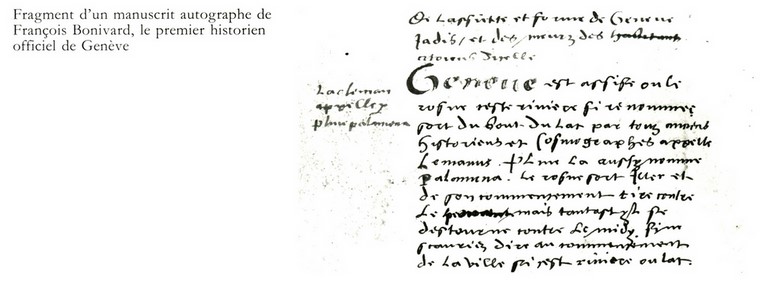 Fragment d'un manuscrit autographe de
François Bonivard, le premier historien
officiel de Genève
De Lassiette et forme de Geneve
Jadis, et des meurz des habitant
citoiens Dicelle
Lac leman
appelle
pline palamena
Geneve est assise ou le
rosne ceste riviere si renommee
sort du bout du Lac par tous
historiens et Cosmographes appelle
Lemanus. Pline La aussy nomme
Palamena. Le rosne sort et
de son commencement tire contre
Le mais tantost se
destourne contre Le midy.
scauriez dire au commencement
de La ville si cest riviere ou lac.